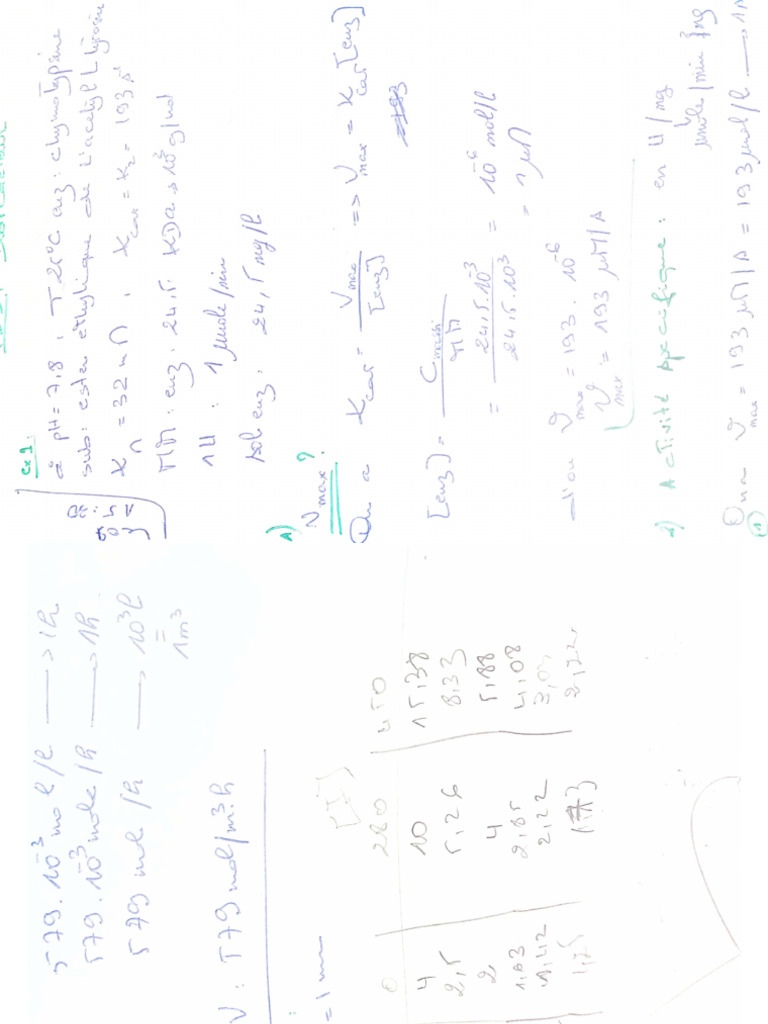 Ex 1:
à pH = 7,8, T 25°C enz: chymotrypsine
sub: ester éthylique de l'acétyl L tyrosine
K = 32 mM, Kcat = K2 = 193 s⁻¹
MM: enz: 24,5 KDa → 10³ g/mol
1U: 1 µmole/min
sol enz: 24,5 mg/l
1)
Vmax ?
On a Kcat = Vmax / [enz] => Vmax = Kcat [enz]
= 193
[enz] = Cmassi / MM
= 24,5.10⁻³ / 24,5.10³ = 10⁻⁶ mol/l
= 1 µM
d'où Vmax = 193. 10⁻⁶
Vmax = 193 µM/s
2) Activité spécifique: en U/mg
µmole/min mg
On a Vmax = 193 µM/s = 193 µmol/l → 1s
579. 10⁻³ mol/l → 1h
579. 10⁻³ mole/h → 1h
579 mol/h → 10³ l
= 1m³
V: 579 mol/m³.h
= 1 mM
[I]
0 280 450
4 10 15,38
2,5 5,26 8,33
2 4 5,88
1,63 2,85 4,08
1,42 2,22 3,03
1,25 2,22